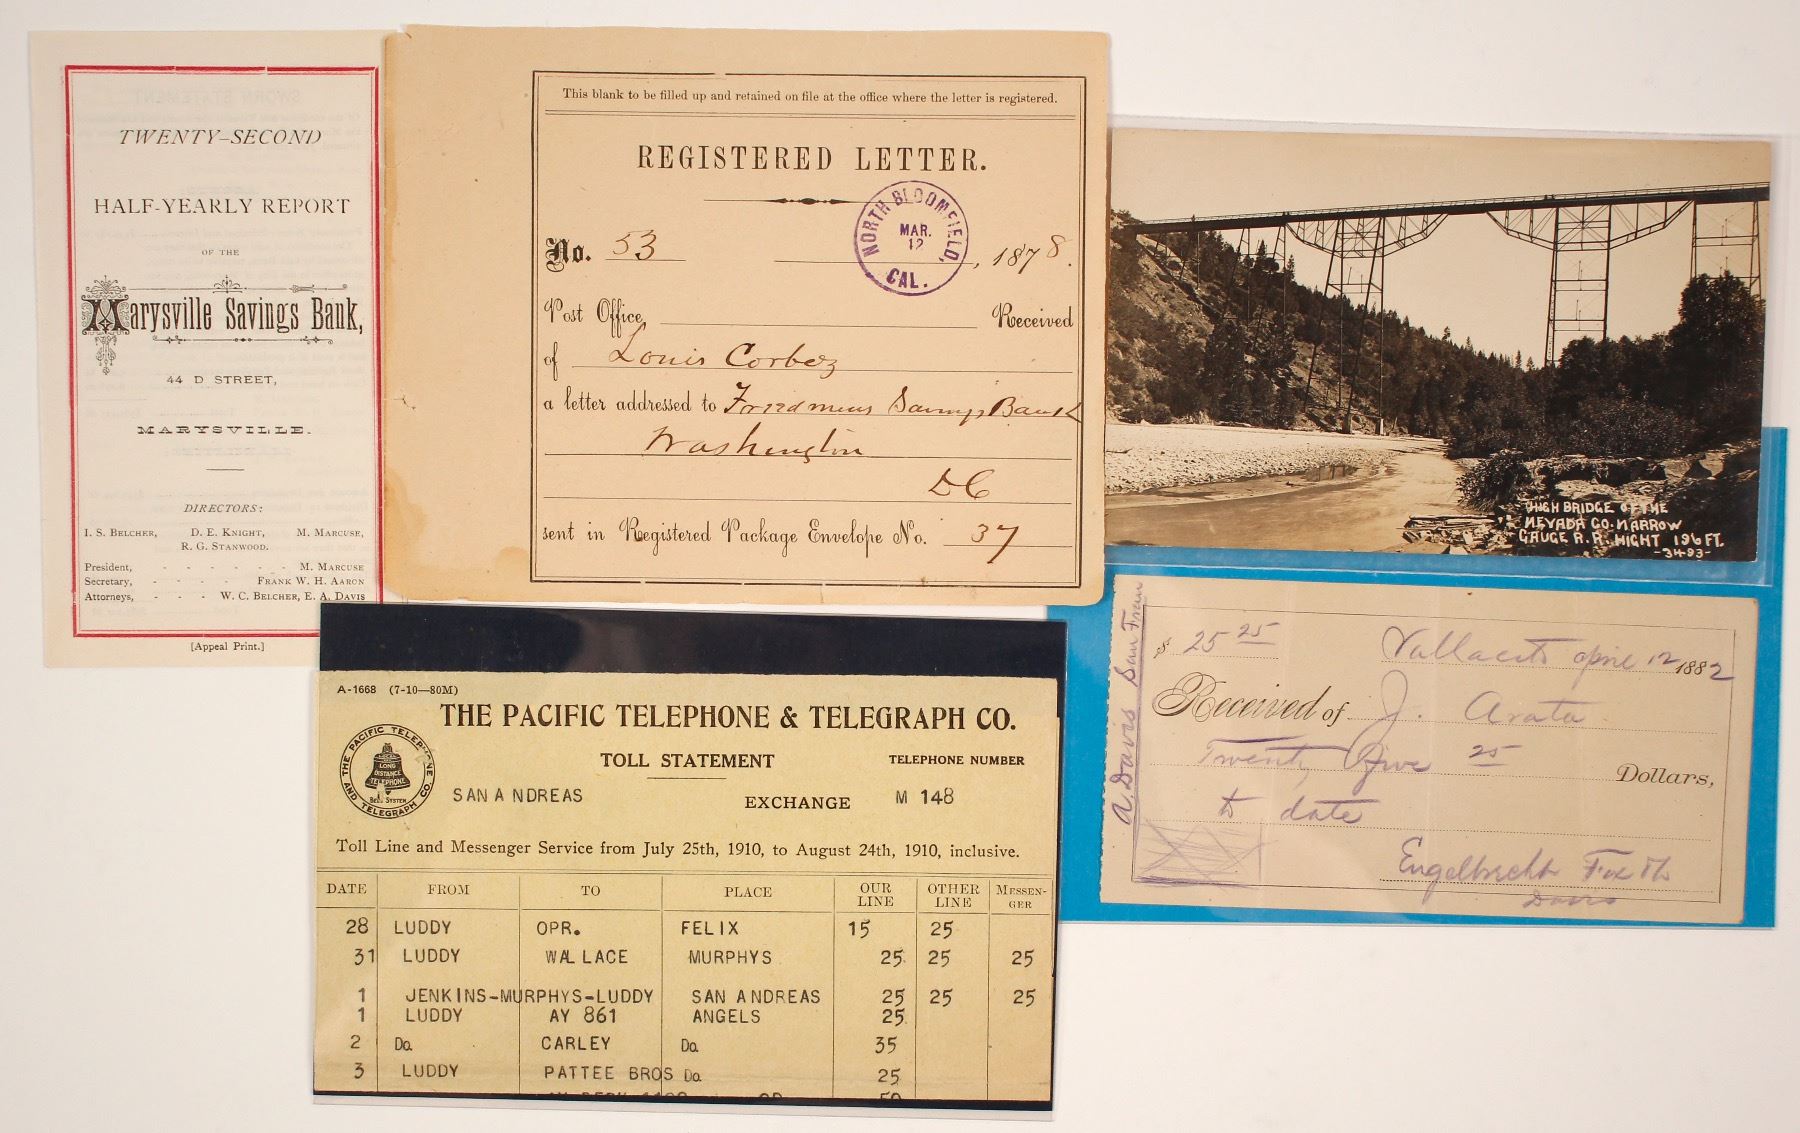 TWENTY-SECOND
HALF-YEARLY REPORT
OF THE
Marysville Savings Bank,
44 D STREET,
MARYSVILLE.
DIRECTORS:
I. S. BELCHER, D. E. KNIGHT, M. MARCUSE,
R. G. STANWOOD.
President, - - - - - - M. MARCUSE
Secretary, - - - - FRANK W. H. AARON
Attorneys, - - - W. C. BELCHER, E. A. DAVIS
[Appeal Print.]
This blank to be filled up and retained on file at the office where the letter is registered.
REGISTERED LETTER.
NORTH BLOOMFIELD,
MAR.
12
CAL.
No. 53 , 1878.
Post Office Received
of Louis Corbez
a letter addressed to Freedmens Savings Bank
Washington
DC
sent in Registered Package Envelope No. 37
HIGH BRIDGE OF THE
NEVADA CO. NARROW
GAUGE R.R. HIGHT 196 FT.
-3493-
A. Davis San Fran
$ 25 25 Vallecito April 12 1882
Received of J. Arata
Twenty five 25 Dollars,
to date
Engelbrecht Fox &
Davis
A-1668 (7-10—80M)
THE PACIFIC TELEPHONE & TELEGRAPH CO.
THE PACIFIC TELEPHONE AND TELEGRAPH CO.
LONG
DISTANCE
TELEPHONE
BELL SYSTEM
TOLL STATEMENT TELEPHONE NUMBER
SAN ANDREAS EXCHANGE M 148
Toll Line and Messenger Service from July 25th, 1910, to August 24th, 1910, inclusive.
DATE FROM TO PLACE OUR LINE OTHER LINE MESSENGER
28 LUDDY OPR. FELIX 15 25
31 LUDDY WALLACE MURPHYS 25 25 25
1 JENKINS-MURPHYS-LUDDY SAN ANDREAS 25 25 25
1 LUDDY AY 861 ANGELS 25
2 Do. CARLEY Do. 35
3 LUDDY PATTEE BROS Do. 25